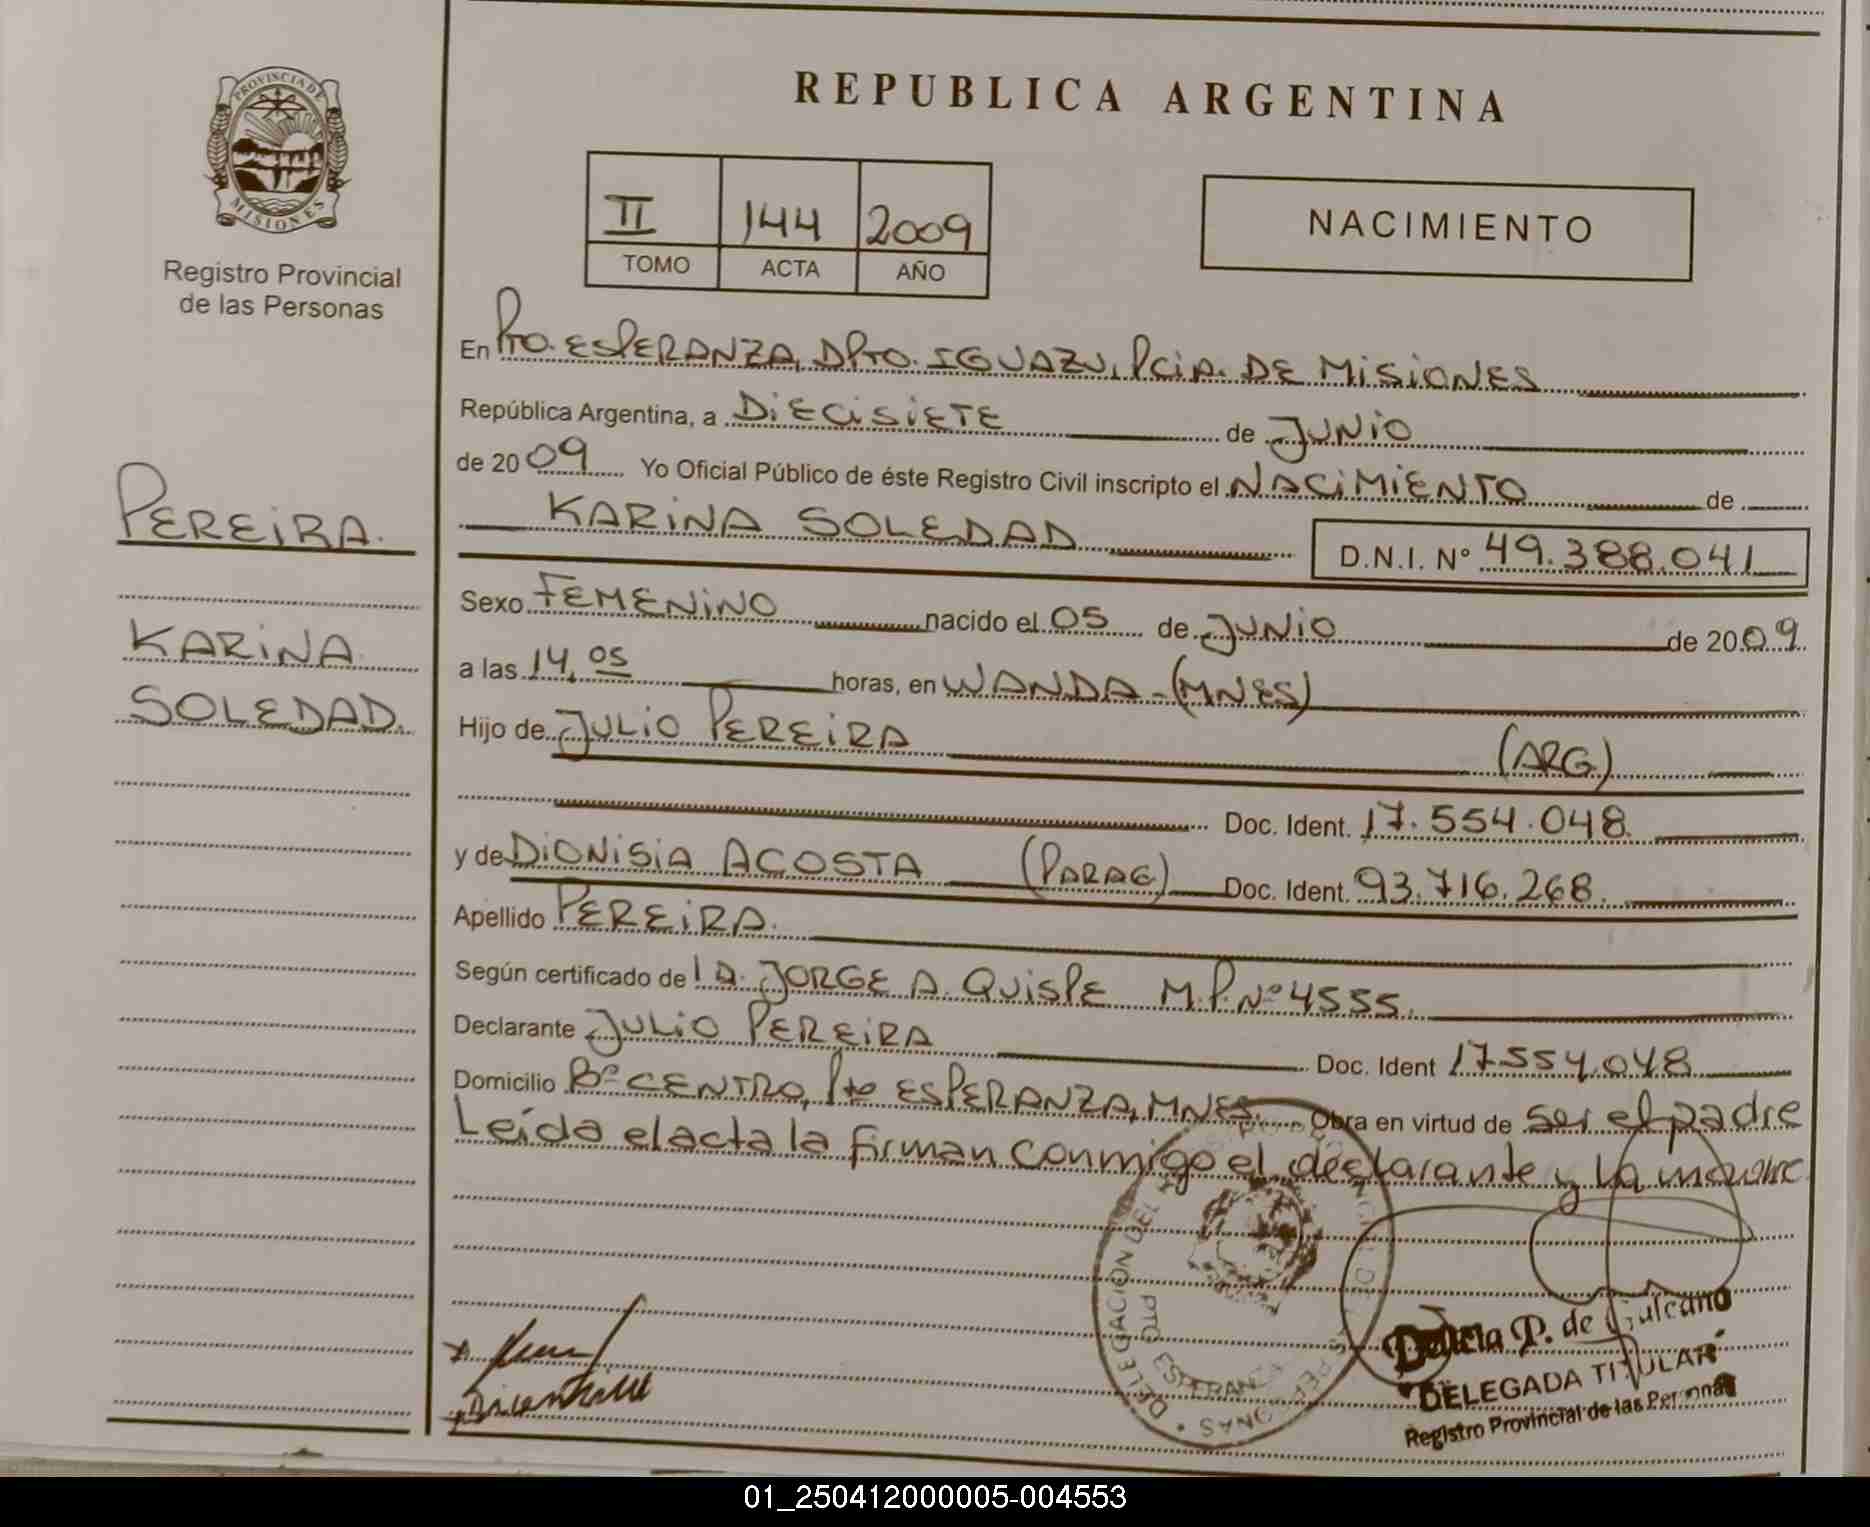 PROVINCIA DE
MISIONES
Registro Provincial
de las Personas
PEREIRA.
KARINA
SOLEDAD.
REPUBLICA ARGENTINA
II 144 2009
TOMO ACTA AÑO
NACIMIENTO
En Pto. ESPERANZA, DPTO. IGUAZU, PCIA. DE MISIONES
República Argentina, a DIECISIETE de JUNIO
de 2009 Yo Oficial Público de éste Registro Civil inscripto el NACIMIENTO de
KARINA SOLEDAD D.N.I. Nº 49.388.041
Sexo FEMENINO nacido el 05 de JUNIO de 2009
a las 14,05 horas, en WANDA-(MNES)
Hijo de JULIO PEREIRA (ARG)
Doc. Ident. 17.554.048
y de DIONISIA ACOSTA (PARAG) Doc. Ident. 93.716.268.
Apellido PEREIRA.
Según certificado de JORGE A. QUISPE M.P. Nº 4555.
Declarante JULIO PEREIRA Doc. Ident 17554.048
Domicilio Bº CENTRO, Pto ESPERANZA, MNES. Obra en virtud de ser el padre
Leída el acta la firman conmigo el declarante y la madre
DELEGACION DEL PTO ESPERANZA
P. de Galeano
DELEGADA TITULAR
Registro Provincial de las Personas
01_250412000005-004553